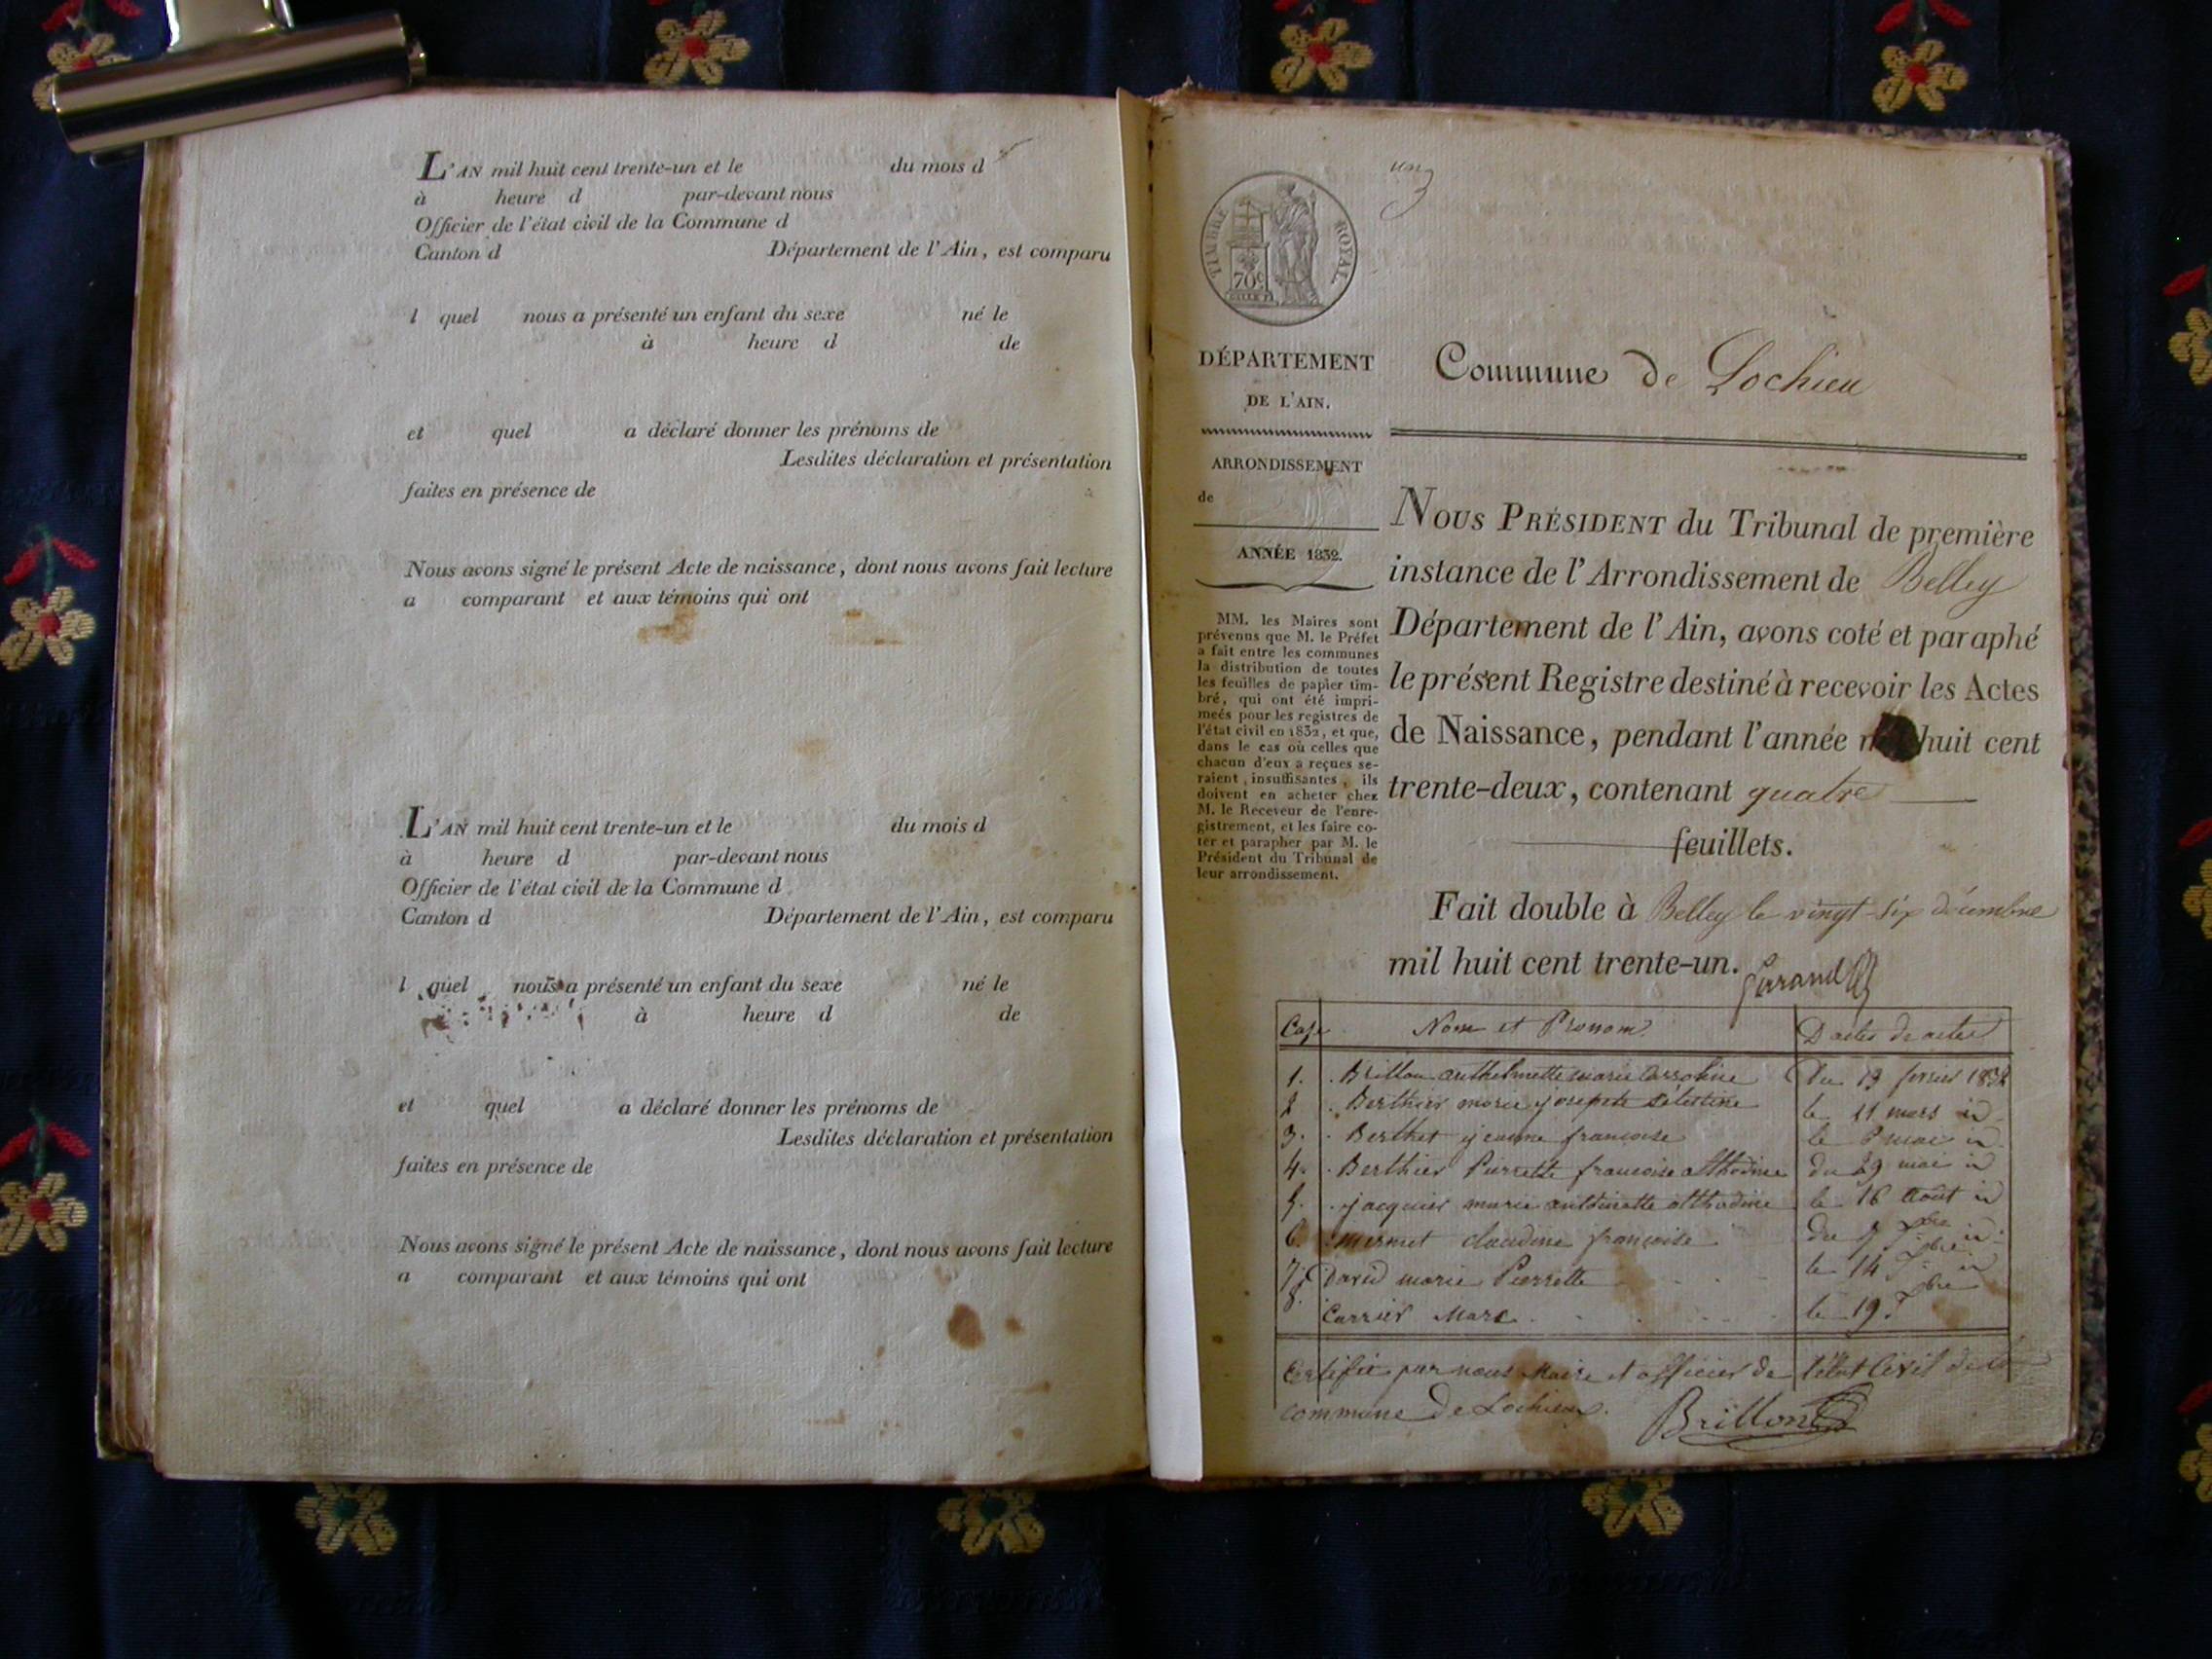 L'AN mil huit cent trente-un et le du mois d
à heure d par-devant nous
Officier de l'état civil de la Commune d
Canton d Département de l'Ain, est comparu
l quel nous a présenté un enfant du sexe né le
à heure d de
et quel a déclaré donner les prénoms de
Lesdites déclaration et présentation
faites en présence de
Nous avons signé le présent Acte de naissance, dont nous avons fait lecture
a comparant et aux témoins qui ont
L'AN mil huit cent trente-un et le du mois d
à heure d par-devant nous
Officier de l'état civil de la Commune d
Canton d Département de l'Ain, est comparu
l quel nous a présenté un enfant du sexe né le
à heure d de
et quel a déclaré donner les prénoms de
Lesdites déclaration et présentation
faites en présence de
Nous avons signé le présent Acte de naissance, dont nous avons fait lecture
a comparant et aux témoins qui ont
un
TIMBRE ROYAL
70c
DÉPARTEMENT
DE L'AIN.
ARRONDISSEMENT
de
ANNÉE 1832.
MM. les Maires sont
prévenus que M. le Préfet
a fait entre les communes
la distribution de toutes
les feuilles de papier tim-
bré, qui ont été impri-
meés pour les registres de
l'état civil en 1832, et que,
dans le cas où celles que
chacun d'eux a reçues se-
raient insuffisantes, ils
doivent en acheter chez
M. le Receveur de l'enre-
gistrement, et les faire co-
ter et parapher par M. le
Président du Tribunal de
leur arrondissement.
Commune de Lochieu
NOUS PRÉSIDENT du Tribunal de première
instance de l'Arrondissement de Belley
Département de l'Ain, avons coté et paraphé
le présent Registre destiné à recevoir les Actes
de Naissance, pendant l'année huit cent
trente-deux, contenant quatre
feuillets.
Fait double à Belley le vingt-six décembre
mil huit cent trente-un.
Nom et Pronom Dactes de actes
1. Brillon anthelmette marie Carroline Du 13 fevrier 1832
2 Berthier marie josephte Selestine le 11 mars id
3. Berthet jeanne francoise le mai id
4. Berthier Pierrette francoise du 29 mai id
5. jacquier marie antoinette le 16 Août id
6. mermet claudine françoise du id
7. David marie Pierrette le 14 id
8. Carrier Marc le 19.
Certifié par nous Maire et officier de l'état Civil de la
commune de Lochieu.
Brillon